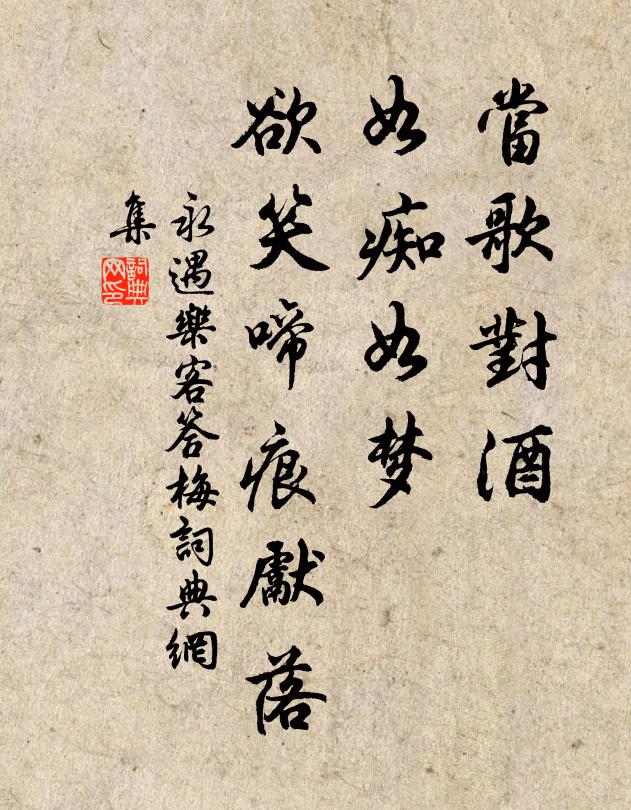 當歌對酒
如痴如梦
欲笑啼痕獻落
永遇樂客答梅詞典網
集
詞典
网印